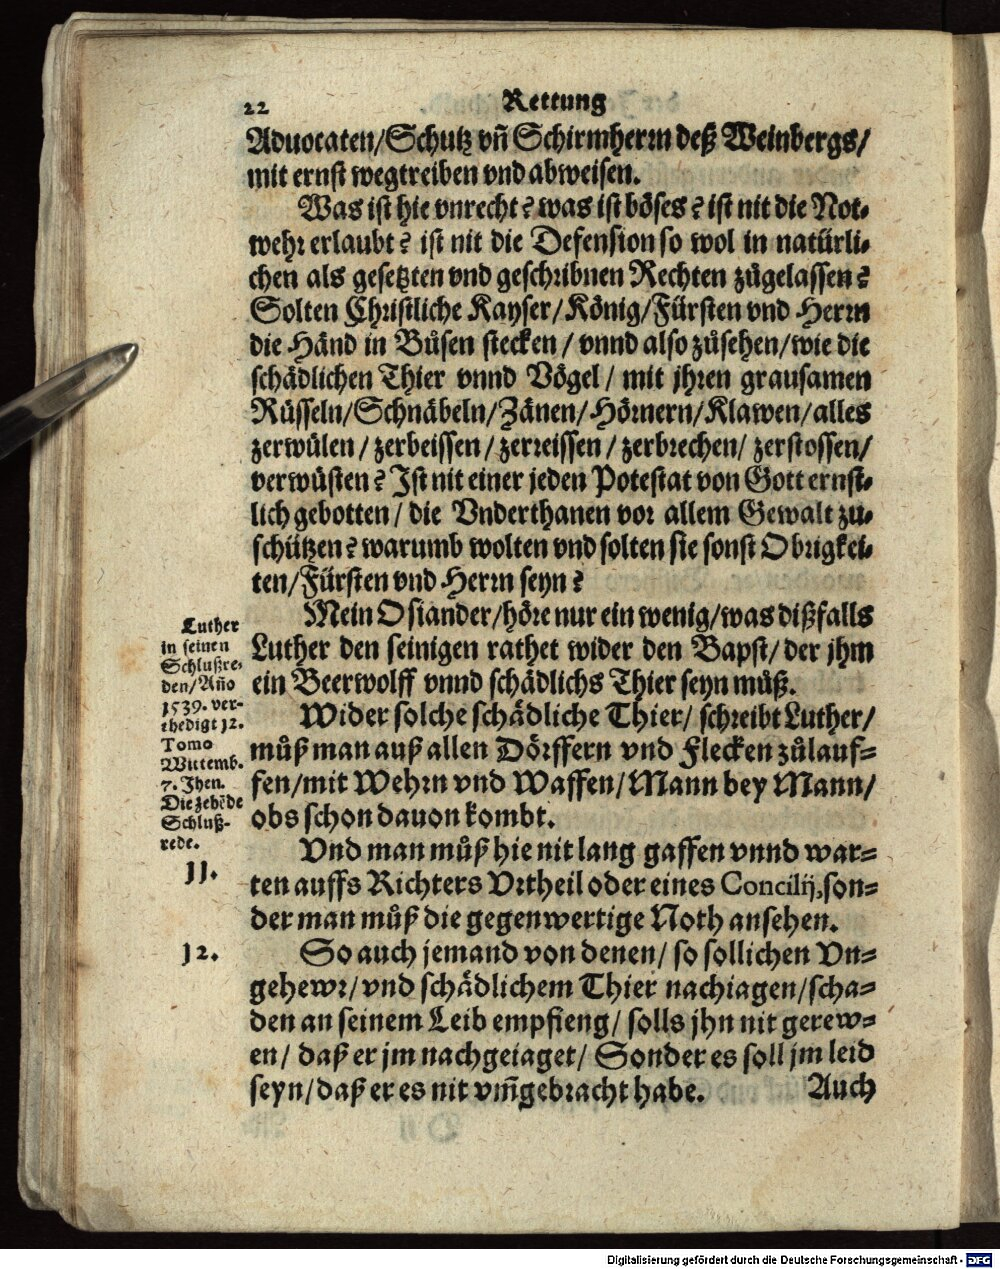 22 Rettung
Aduocaten/Schutz vñ Schirmherꝛn deß Weinbergs/
mit ernst wegtreiben vnd abweisen.
Was ist hie vnrecht? was ist böses? ist nit die Not⸗
wehr erlaubt? ist nit die Defension so wol in natürli⸗
chen als gesetzten vnd geschribnen Rechten zůgelassen?
Solten Christliche Kayser/König/Fürsten vnd Herꝛn
die Händ in Bůsen stecken/ vnnd also zůsehen/wie die
schädlichen Thier vnnd Vögel/ mit jhren grausamen
Rüsseln/Schnäbeln/Zänen/Hörnern/Klawen/alles
zerwülen/ zerbeissen/ zerreissen/ zerbrechen/ zerstossen/
verwüsten? Ist nit einer jeden Potestat von Gott ernst⸗
lich gebotten/ die Vnderthanen vor allem Gewalt zu⸗
schützen? warumb wolten vnd solten sie sonst Obrigkei⸗
ten/Fürsten vnd Herꝛn seyn?
Mein Osiander/höre nur ein wenig/was dißfalls
Luther den seinigen rathet wider den Bapst/ der jhm
ein Beerwolff vnnd schädlichs Thier seyn můß.
Wider solche schädliche Thier/ schreibt Luther/
můß man auß allen Dörffern vnd Flecken zůlauf⸗
fen/mit Wehrn vnd Waffen/Mann bey Mann/
obs schon dauon kombt.
Vnd man můß hie nit lang gaffen vnnd war⸗
ten auffs Richters Vrtheil oder eines Concilij, son⸗
der man můß die gegenwertige Noth ansehen.
So auch jemand von denen/ so sollichen Vn⸗
gehewr/ vnd schädlichem Thier nachiagen/scha⸗
den an seinem Leib empfieng/ solls jhn nit gerew⸗
en/ daß er jm nachgeiaget/ Sonder es soll jm leid
seyn/daß er es nit vm̃gebracht habe. Auch
Luther
in seinen
Schlußre⸗
den/Año
1539. ver⸗
thedigt 12.
Tomo
Wittemb.
7. Jhen.
Die zehẽde
Schluß⸗
rede.
11.
12.
Digitalisierung gefördert durch die Deutsche Forschungsgemeinschaft - DFG